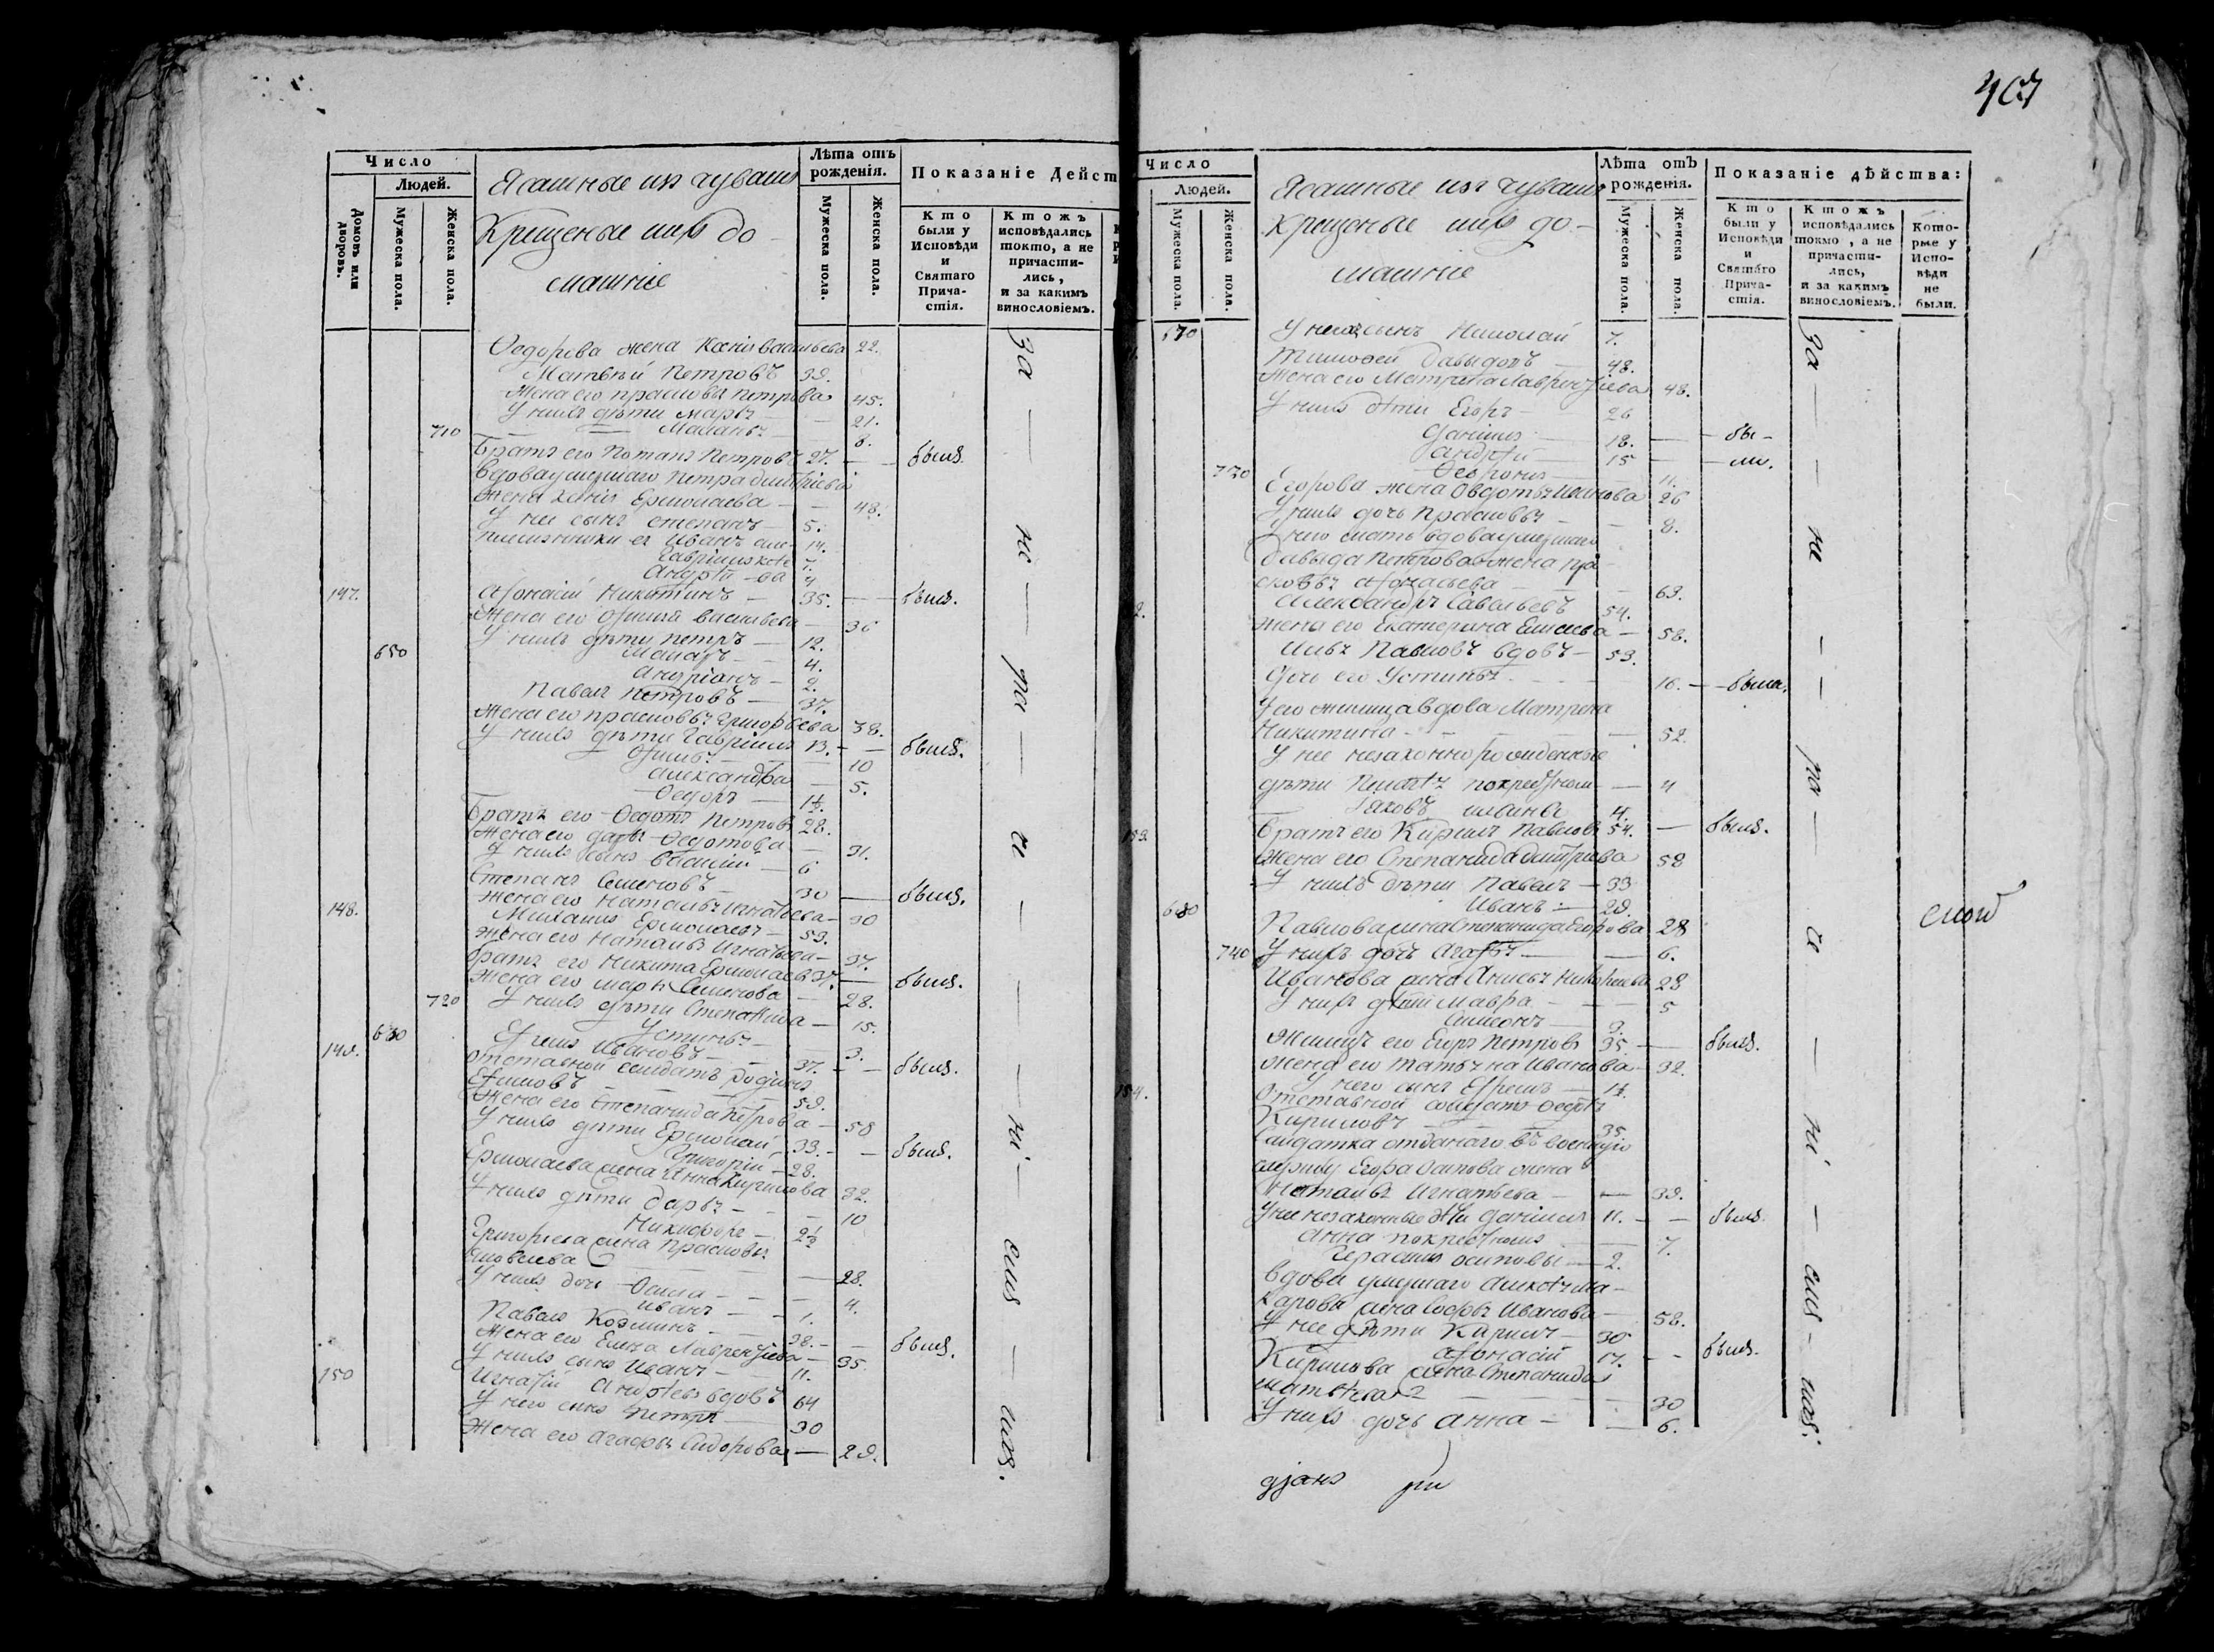 Число
Людей.
Домовъ или дворовъ.
Мужеска пола.
Женска пола.
Ясашные изъ чувашъ
Крещеные ихъ до
машніе
Лѣта отъ рожденія.
Мужеска пола.
Женска пола.
Показаніе Дейст
Кто были у Исповѣди и Святаго Причастія.
Ктожъ исповѣдались токмо, а не причастились, и за какимъ винословіемъ.
Ѳедорова жена Ксенія Васильева 22.
Матвѣй Петровъ 39.
Жена его Прасковья Петрова 45.
У нихъ дѣти Марья 21.
710 Маланья 6.
Братъ его Потапъ Петровъ 27. — былъ.
Вдова умершаго Петра Дмитріева
жена Ксенія Ермолаева — 48.
У нее сынъ Степанъ 5.
племянники ея Иванъ 14.
Гавріилъ 7.
Андрей 4
147. Афонасій Никитинъ — 35. — былъ.
Жена его Васильева — 36
У нихъ дѣти Петръ — 12.
650 Макаръ — 4.
Андріанъ — 2.
Павелъ Петровъ — 37.
Жена его Прасковья Григорьева 38.
У нихъ дѣти Гавріилъ 13. — былъ.
10
Александра 5.
Ѳедоръ — 1½.
Братъ его Ѳедотъ Петровъ 28.
Жена его Дарья Ѳедотова — 31.
У нихъ сынъ Василій — 6
Степанъ Семеновъ — 30 — былъ.
Жена его Наталья Игнатьева — 30
148. Михаилъ Ермолаевъ — 59.
Жена его Наталья Игнатьева — 37.
Братъ его Никита Ермолаевъ 37. — былъ.
Жена его Марья Семенова — 28.
720 У нихъ дѣти Степанида — 15.
Устинья — 3.
149. 660 Ефимъ Ивановъ — 37. — былъ.
Отставной солдатъ Родіонъ
Ефимовъ — 59.
Жена его Степанида Петрова — 58
У нихъ дѣти Ермолай 33. — былъ.
Григорій — 28.
Ермолаева жена Анна Кирилова 32.
У нихъ дѣти Дарья — 10
Никифоръ — 2½
Григорьева жена Прасковья
Яковлева — 28.
У нихъ дочь — 4.
Иванъ — 1.
Павелъ Козминъ — 38. — былъ.
Жена его Елена Лаврентьева — 35.
У нихъ сынъ Иванъ — 11.
150 Игнатій Андреевъ вдовъ 64
У него сынъ Петръ 30
Жена его Агафья Сидорова — 29.
За — не — ра — че — ні — емъ — ихъ.
407
Число
Людей.
Мужеска пола.
Женска пола.
Ясашные изъ чувашъ
Крещеные ихъ до-
машніе
Лѣта отъ рожденія.
Мужеска пола.
Женска пола.
Показаніе дѣйства:
Кто были у Исповѣди и Святаго Причастія.
Ктожъ исповѣдались токмо, а не причастились, и за какимъ винословіемъ.
Которые у Исповѣди не были.
670 У него сынъ Николай 7.
Тимофей Давыдовъ — 48.
Жена его Матрена Лаврентьева 48.
У нихъ дѣти Егоръ — 26
Даніилъ — 18. — бы-
Андрей 15 — ли.
730 Ѳевронія 11.
Егорова жена Овдотья Иванова 26
У нихъ дочь Прасковья — 8.
У него мать вдова умершаго
Давыда Петрова жена Пра-
сковья Афонасьева — 69.
2. Александръ Савельевъ 54.
Жена его Екатерина Елисеева — 58.
Илья Павловъ вдовъ — 53.
Дочь его Устинья — 16. — была.
У его жилица вдова Матрена
Никитина — 52.
У нее незаконно рожденные
дѣти — 4
Яковъ 4.
153. Братъ его Кирилъ Павловъ 54. — былъ.
Жена его Степанида Дмитріева 58
У нихъ дѣти Павелъ — 33
680 Иванъ — 29.
Павлова жена Степанида Егорова 28
740 У нихъ дочь Агафья — 6.
Иванова жена Анисья 28
У нихъ дѣти Мавра — 5
Симеонъ 3.
Жилецъ его Егоръ Петровъ 35 — былъ.
Жена его Татьяна Иванова 32.
У него сынъ Ефремъ — 1½.
154. Отставной солдатъ Ѳедотъ
Кириловъ — 35
Солдатка отданаго въ военную
службу Егора Осипова жена
Наталья Игнатьева — 39.
У нее незаконные дѣти Даніилъ 11. — былъ.
Анна 7.
Герасимъ Осиповы — 2.
Вдова умершаго Алексѣя Ма-
карова жена Софья Иванова — 58.
У нее дѣти Кирилъ — 30
Афонасій 17. — былъ.
Кирилова жена Степанида
Матвѣева — 30
У нихъ дочь Анна — 6.
За — не — ра — че — ні — емъ — ихъ.